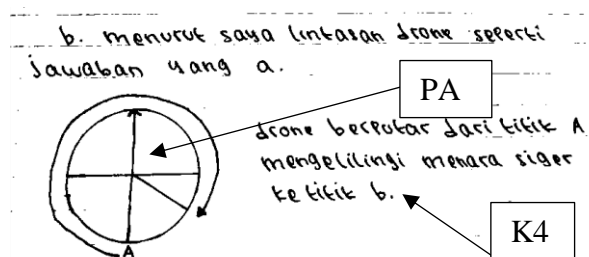 b. menurut saya lintasan drone seperti
jawaban yang a.
PA
drone berputar dari titik A
mengelilingi menara siger
ke titik b.
K4
A